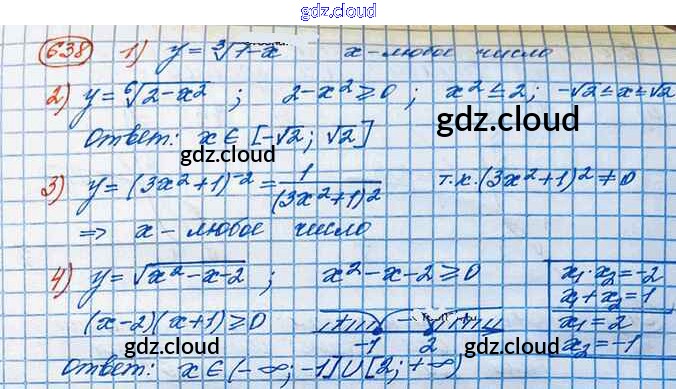 gdz.cloud
638 1) y = ∛(1-x) x - любое число
2) y = ⁶√(2-x²) ; 2-x² ≥ 0 ; x² ≤ 2 ; -√2 ≤ x ≤ √2
Ответ: x ∈ [-√2; √2] gdz.cloud
gdz.cloud
3) y = (3x²+1)⁻² = 1/(3x²+1)² т.к. (3x²+1)² ≠ 0
⇒ x - любое число
gdz.cloud
4) y = √(x²-x-2) ; x²-x-2 ≥ 0 x₁·x₂ = -2
x₁+x₂ = 1
(x-2)(x+1) ≥ 0 + - + x₁ = 2
-1 2 x₂ = -1
gdz.cloud gdz.cloud
Ответ: x ∈ (-∞; -1] ∪ [2; +∞)